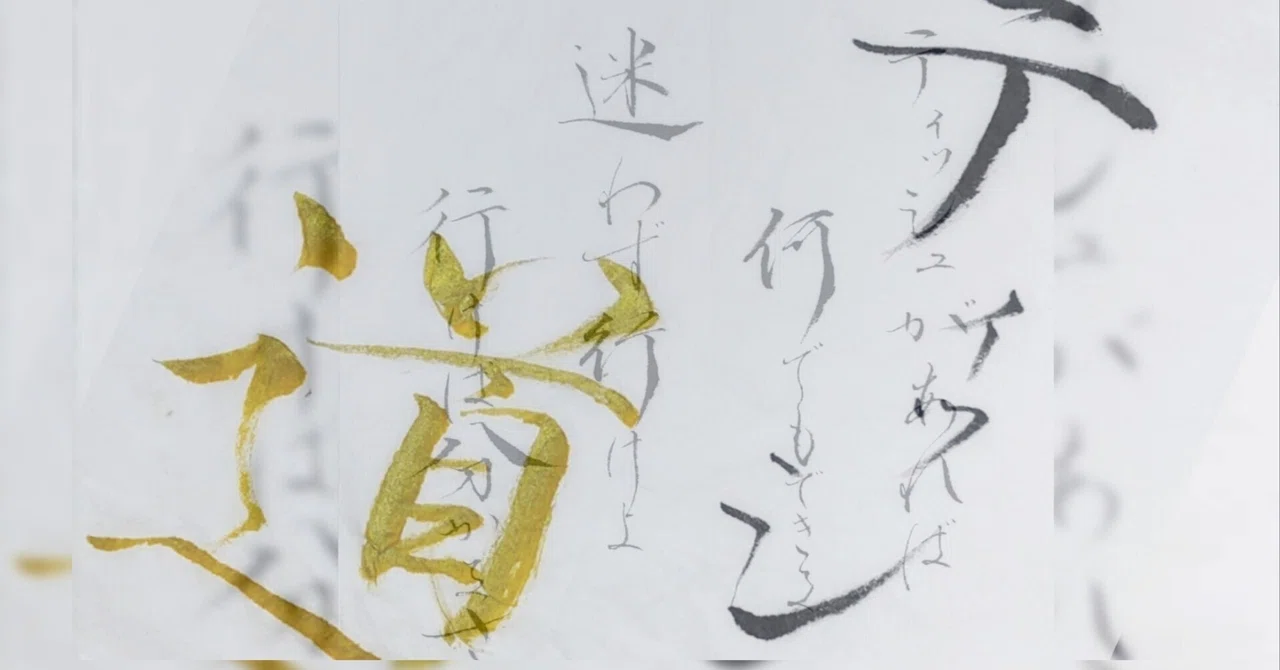 テ
ティッシュがあれば
何でもできる
迷わず行けよ
行けば分かるさ
道